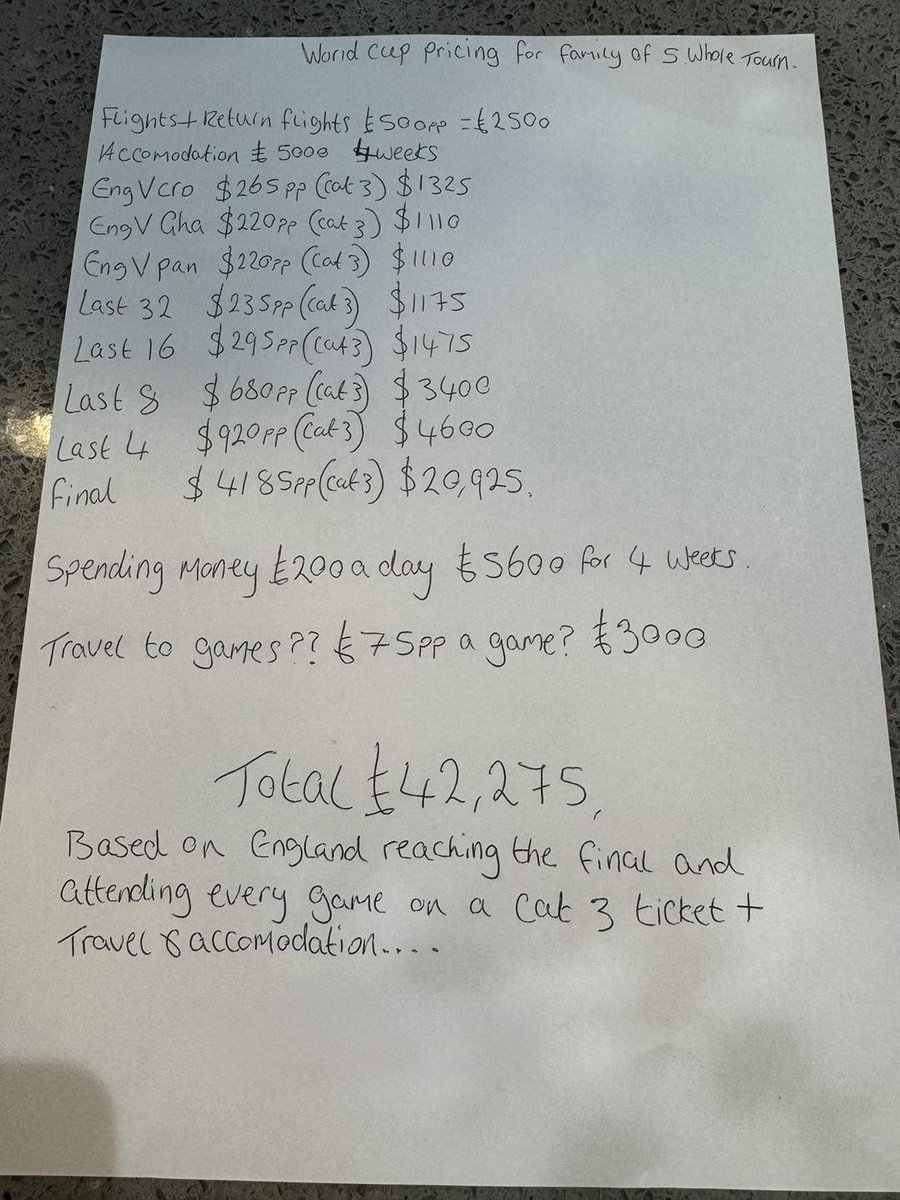 World Cup pricing for family of 5 Whole Tourn.
Flights + Return flights £500pp = £2500
Accomodation £5000 4 weeks
Eng V Cro $265pp (cat 3) $1325
Eng V Gha $220pp (cat 3) $1110
Eng V pan $220pp (cat 3) $1110
Last 32 $235pp (cat 3) $1175
Last 16 $295pp (cat 3) $1475
Last 8 $680pp (cat 3) $3400
Last 4 $920pp (cat 3) $4600
Final $4185pp (cat 3) $20,925.
Spending Money £200 a day £5600 for 4 weeks.
Travel to games?? £75pp a game? £3000
Total £42,275.
Based on England reaching the final and
attending every game on a cat 3 ticket +
Travel & accomodation....